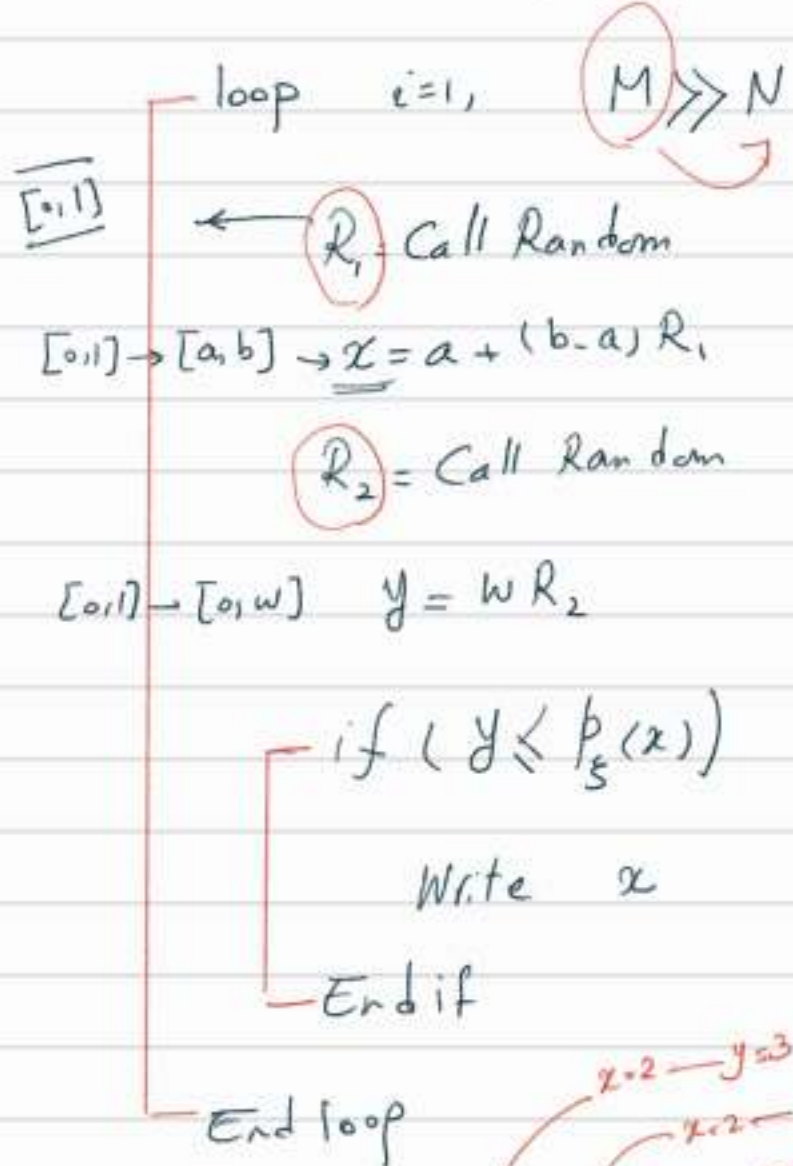 loop i=1, M >> N
[0,1] ← R₁ = Call Random
[0,1] → [a,b] → x = a + (b-a) R₁
R₂ = Call Random
[0,1] → [0,w] y = w R₂
if ( y ≤ p_ξ(x))
Write x
End if
x=2 — y=3
x=2 —
End loop